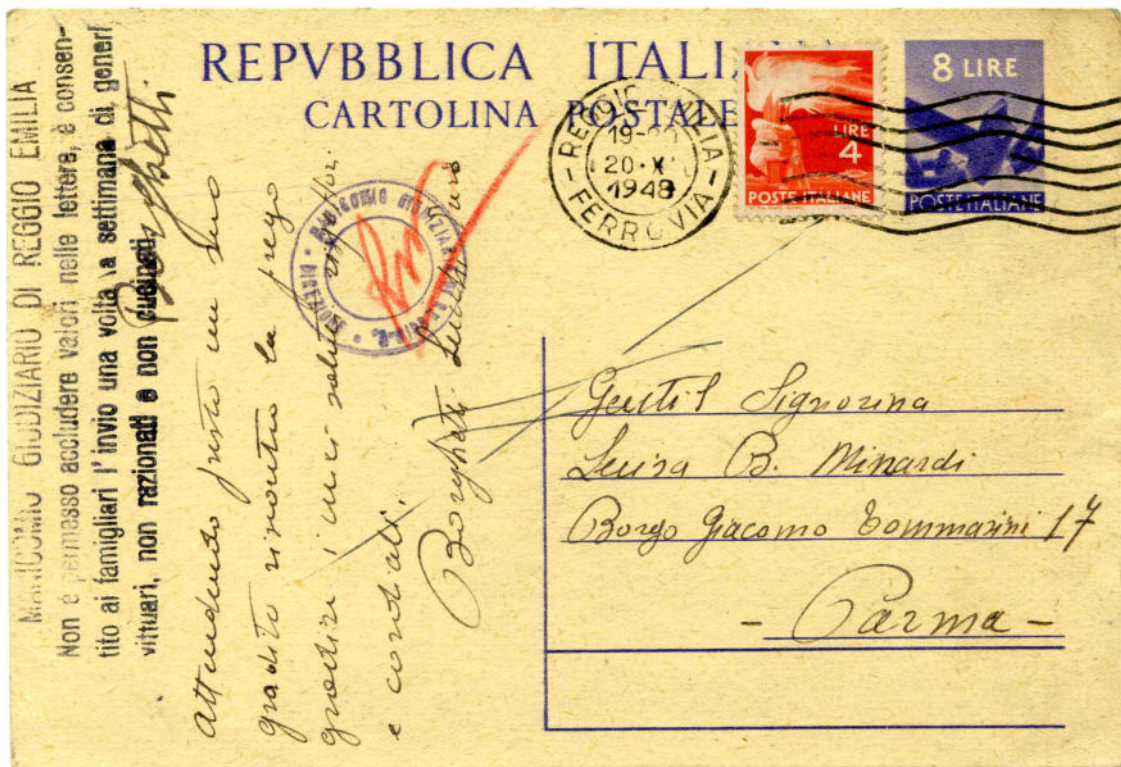 REPVBBLICA ITALI
CARTOLINA POSTALE
8 LIRE
POSTE ITALIANE
LIRE
4
POSTE ITALIANE
REGGIO EMILIA
19-20
20·X
1948
- FERROVIA -
MANICOMIO GIUDIZIARIO DI REGGIO EMILIA
Non è permesso accludere valori nelle lettere, è consen-
tito ai famigliari l'invio una volta a settimana di generi
vittuari, non razionati e non cucinati
Borghatti
Attendendo presto un suo
gradito riscontro la prego
gradire i miei saluti
e cordiali.
Borghatti
MANICOMIO GIUDIZIARIO
Gentil Signorina
Luisa B. Minardi
Borgo Giacomo Tommasini 17
- Parma -